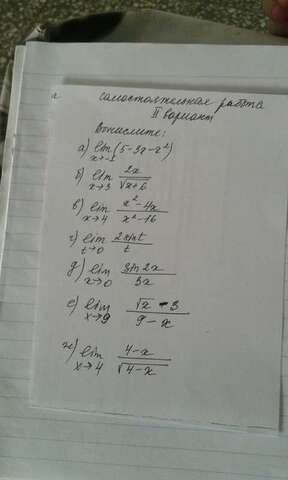 самостоятельная работа
II вариант
Вычислите:
а) lim x→-1 (5-3x-x²)
б) lim x→3 2x/√x+6
в) lim x→4 x²-4x/x²-16
г) lim t→0 2sint/t
д) lim x→0 3sin2x/5x
е) lim x→9 √x-3/9-x
ж) lim x→4 4-x/√4-x